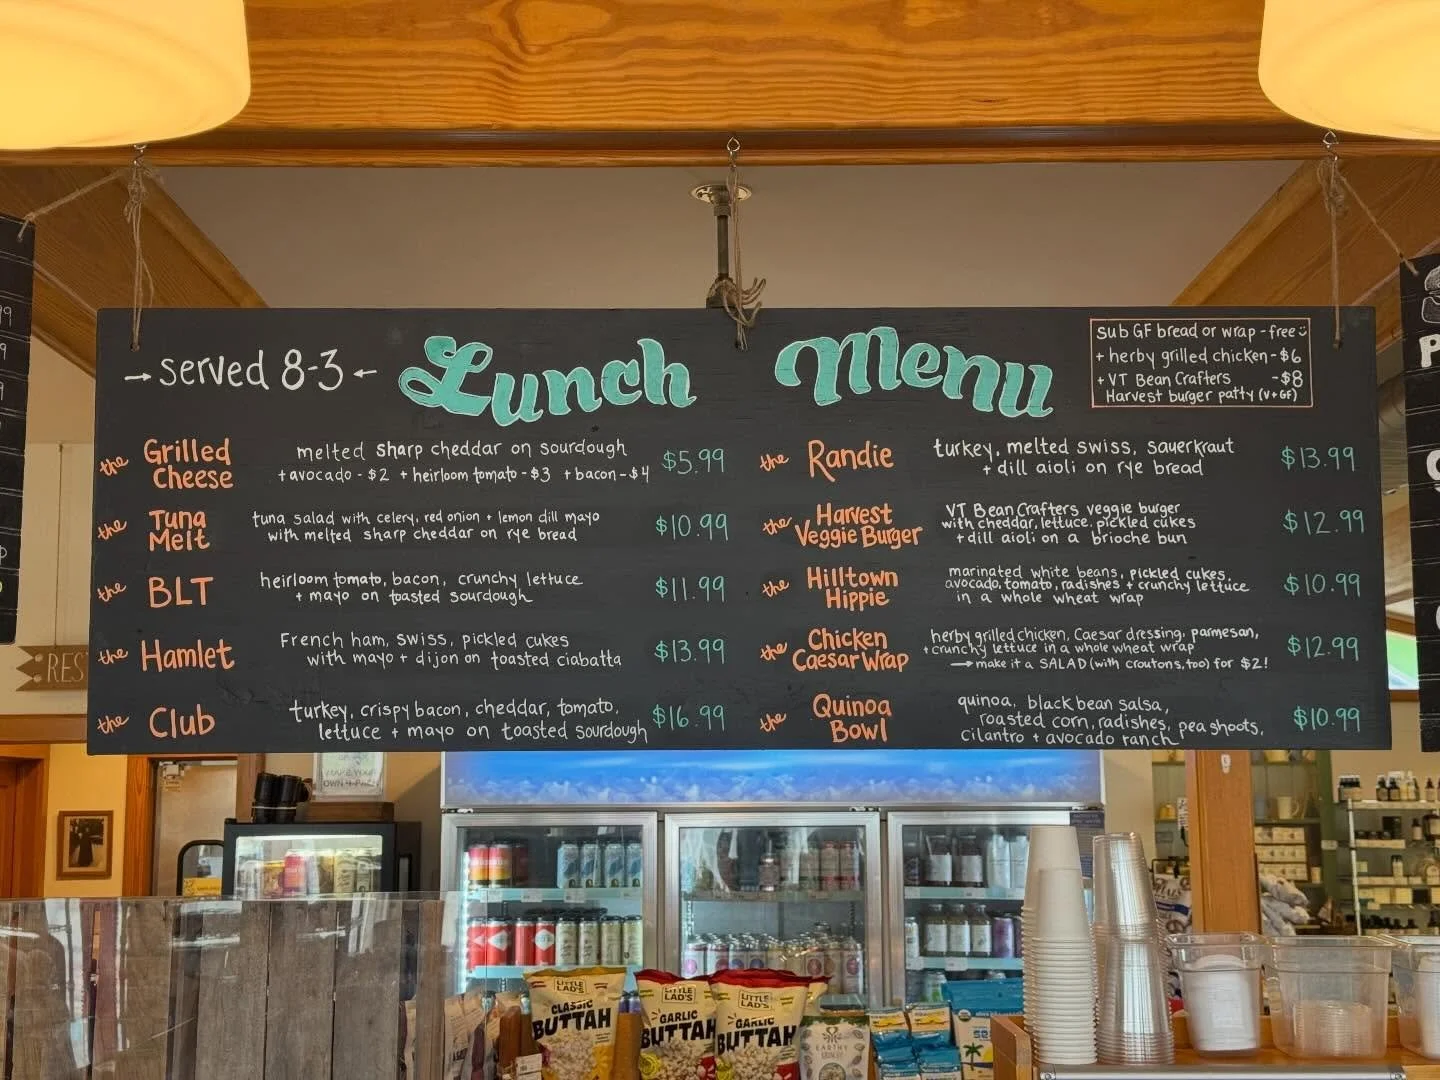 → served 8-3 ←
Lunch Menu
Sub GF bread or wrap - free
+ herby grilled chicken - $6
+ VT Bean Crafters - $8
Harvest burger patty (V+GF)
the Grilled Cheese
melted sharp cheddar on sourdough
+ avocado - $2 + heirloom tomato - $3 + bacon - $4
$5.99
the Tuna Melt
tuna salad with celery, red onion + lemon dill mayo
with melted sharp cheddar on rye bread
$10.99
the BLT
heirloom tomato, bacon, crunchy lettuce
+ mayo on toasted sourdough
$11.99
the Hamlet
French ham, swiss, pickled cukes
with mayo + dijon on toasted ciabatta
$13.99
the Club
turkey, crispy bacon, cheddar, tomato,
lettuce + mayo on toasted sourdough
$16.99
the Randie
turkey, melted swiss, sauerkraut
+ dill aioli on rye bread
$13.99
the Harvest Veggie Burger
VT Bean Crafters veggie burger
with cheddar, lettuce, pickled cukes
+ dill aioli on a brioche bun
$12.99
the Hilltown Hippie
marinated white beans, pickled cukes,
avocado, tomato, radishes + crunchy lettuce
in a whole wheat wrap
$10.99
the Chicken Caesar Wrap
herby grilled chicken, Caesar dressing, parmesan,
+ crunchy lettuce in a whole wheat wrap
→ make it a SALAD (with croutons, too) for $2!
$12.99
the Quinoa Bowl
quinoa, black bean salsa,
roasted corn, radishes, pea shoots,
cilantro + avocado ranch
$10.99
RES
LITTLE LAD'S
CLASSIC
BUTTAH
LITTLE LAD'S
GARLIC
BUTTAH
LITTLE LAD'S
GARLIC
BUTTAH
EARTHY